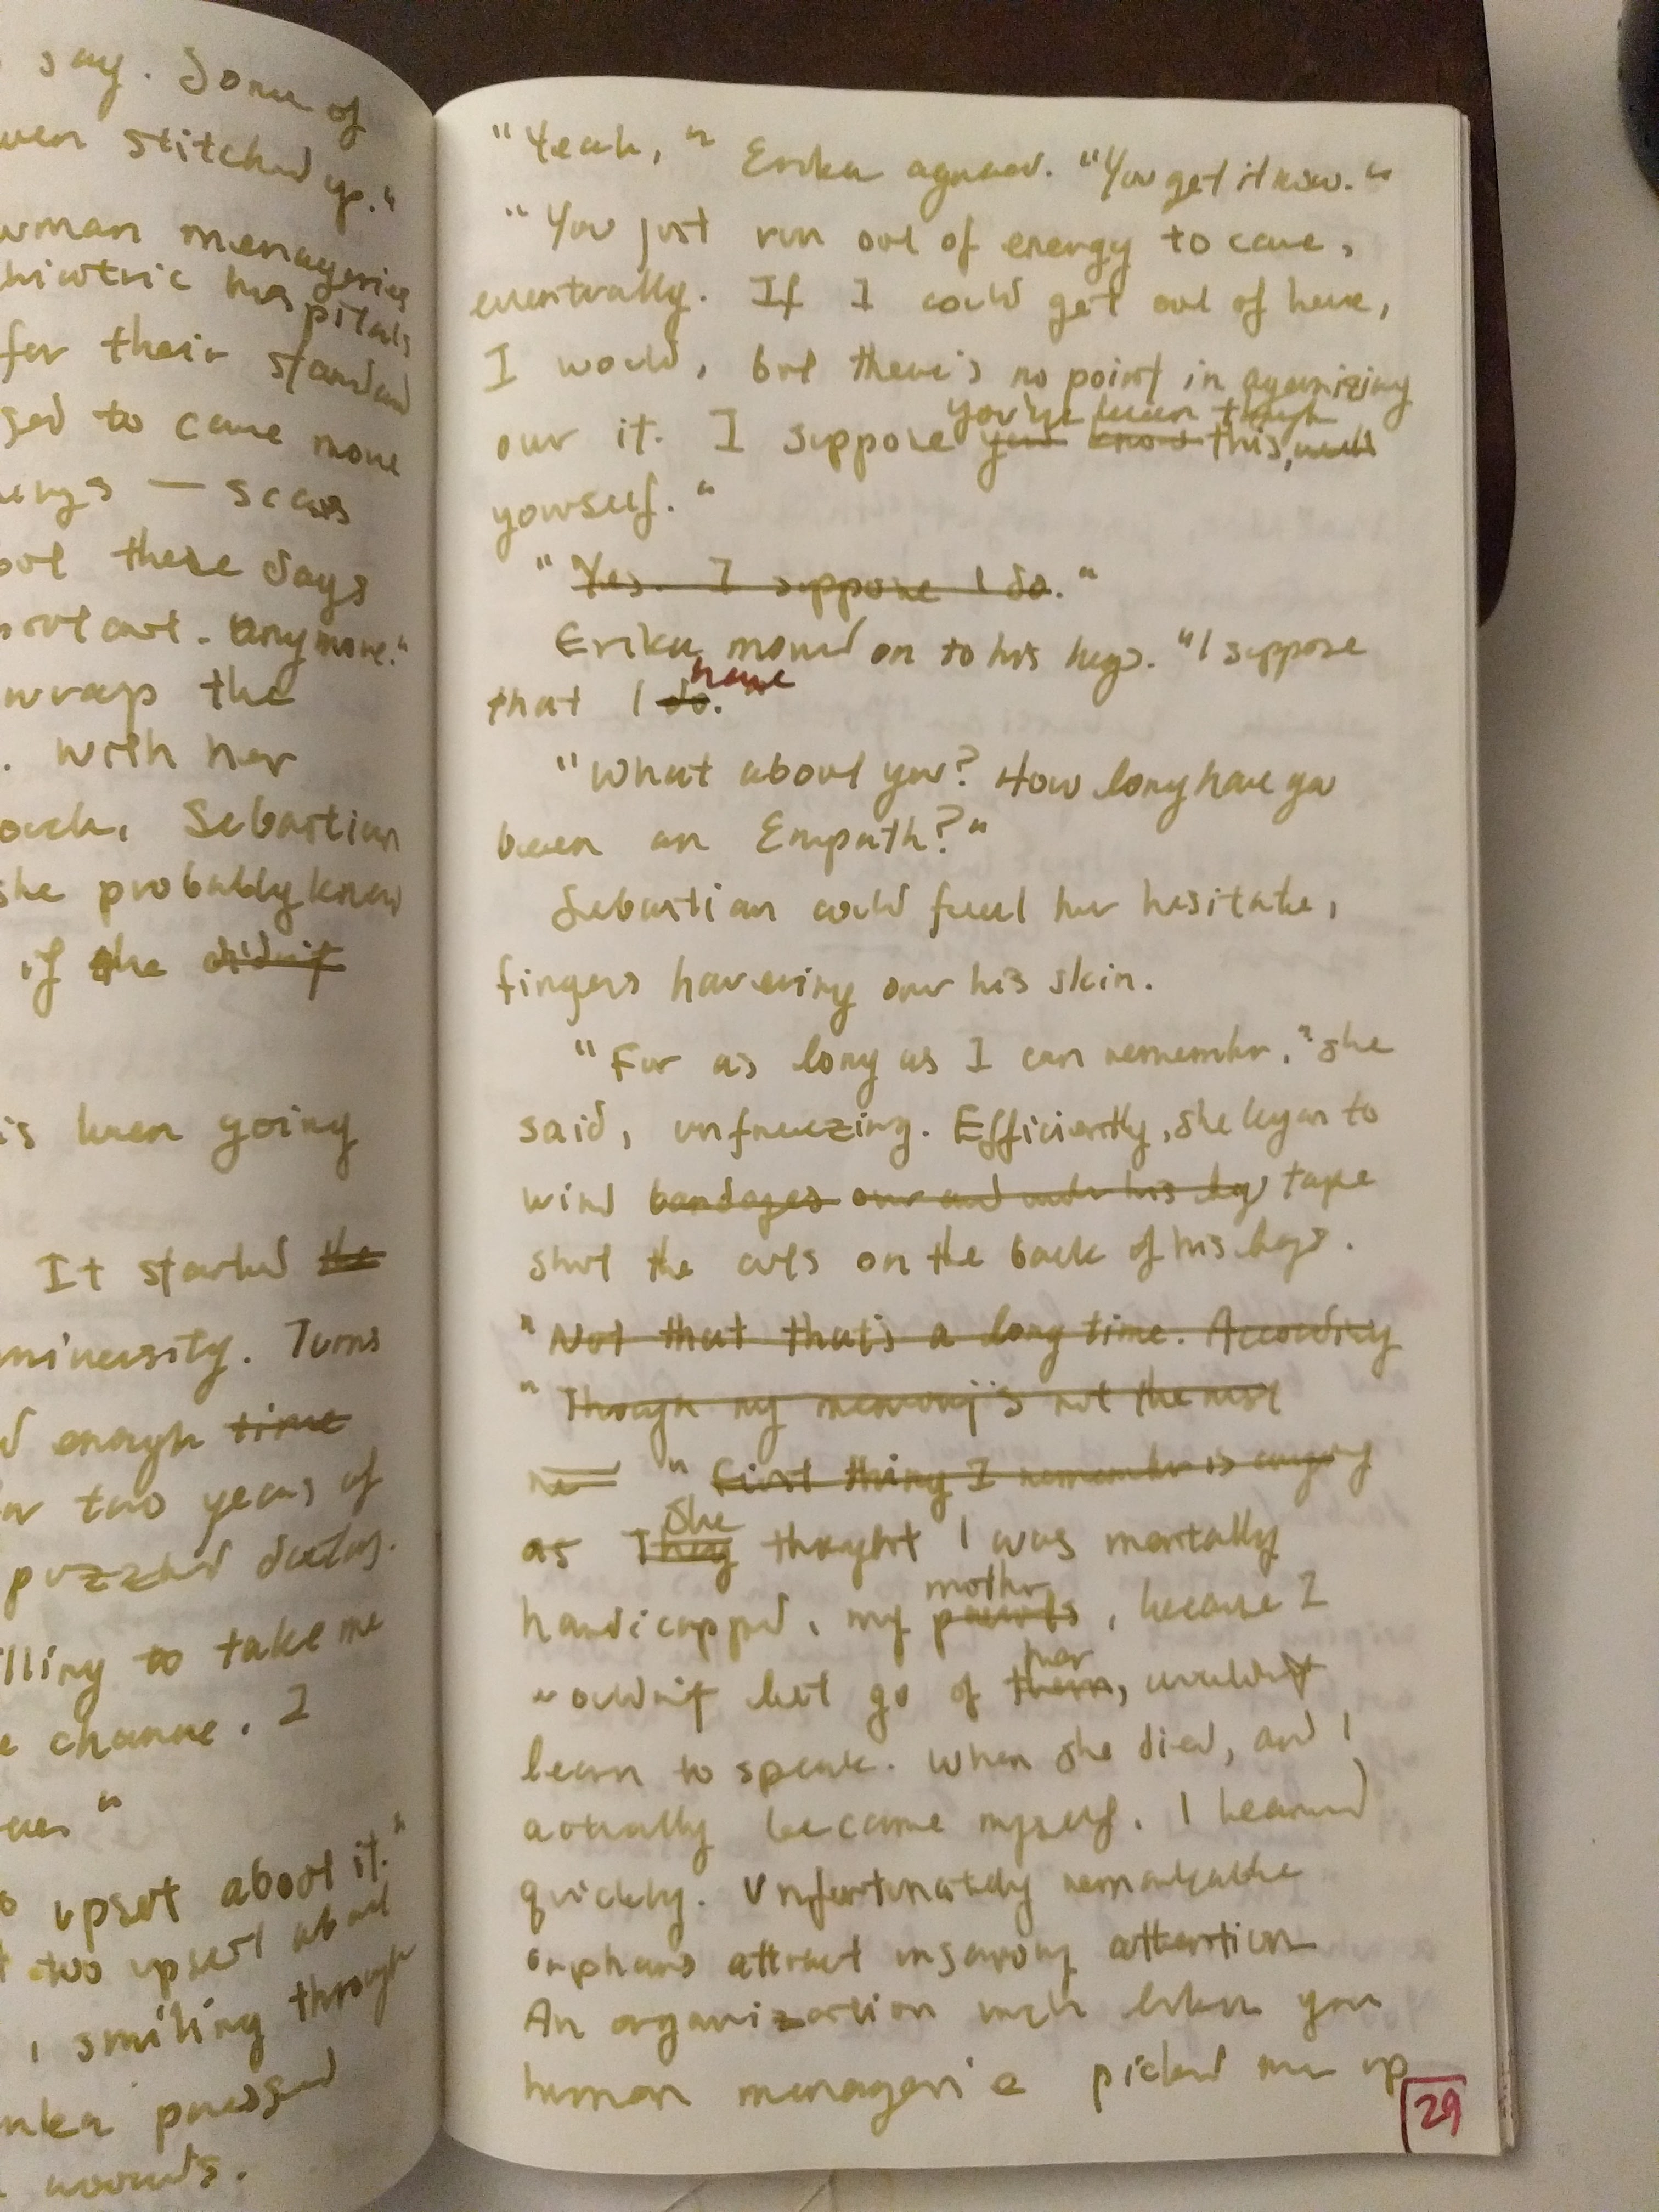 say. Some of
stitched up."
menageries
hospitals
for their standard
to care more
— scars
these days
anymore."
wrap the
. with her
Sebastian
she probably knew
if she didn't
is been going
It started the
university. Turns
enough time
two years of
puzzled doctors.
willing to take me
chance. I
"
upset about it."
two upset about
, smiling through
pressed
wounds.
"Yeah," Erika agreed. "You get it now."
"You just run out of energy to care,
eventually. If I could get out of here,
I would, but there's no point in agonizing
you've been through
over it. I suppose you know this, well
yourself."
"Yes. I suppose I do."
Erika moved on to his legs. "I suppose
have
that I do."
"What about you? How long have you
been an Empath?"
Sebastian could feel her hesitate,
fingers hovering over his skin.
"For as long as I can remember," she
said, unfreezing. Efficiently, she began to
wind bandages over and under his leg tape
shut the cuts on the back of his legs.
"Not that that's a long time. According
"Though my memory's not the most
re "First thing I remember is
She
as They thought I was mentally
mother
handicapped, my parents, because I
her
wouldn't let go of them, wouldn't
learn to speak. When she died, and I
actually became myself. I learned
quickly. Unfortunately remarkable
orphans attract unsavory attention
An organization much like your
human menagerie picked me up
29